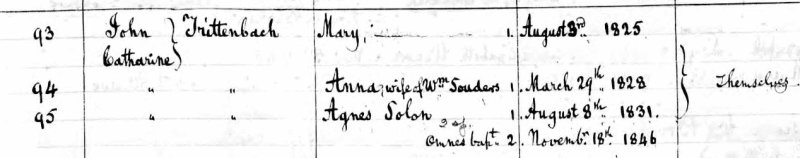 93 John } Trittenbach Mary, 1. August 3rd 1825
Catharine
94 " " Anna, wife of Wm Souders 1 March 29th 1828 } Themselves
95 " " Agnes Solon 1 August 8th 1831.
Omnes bapt. 2. Novembr. 18th 1846